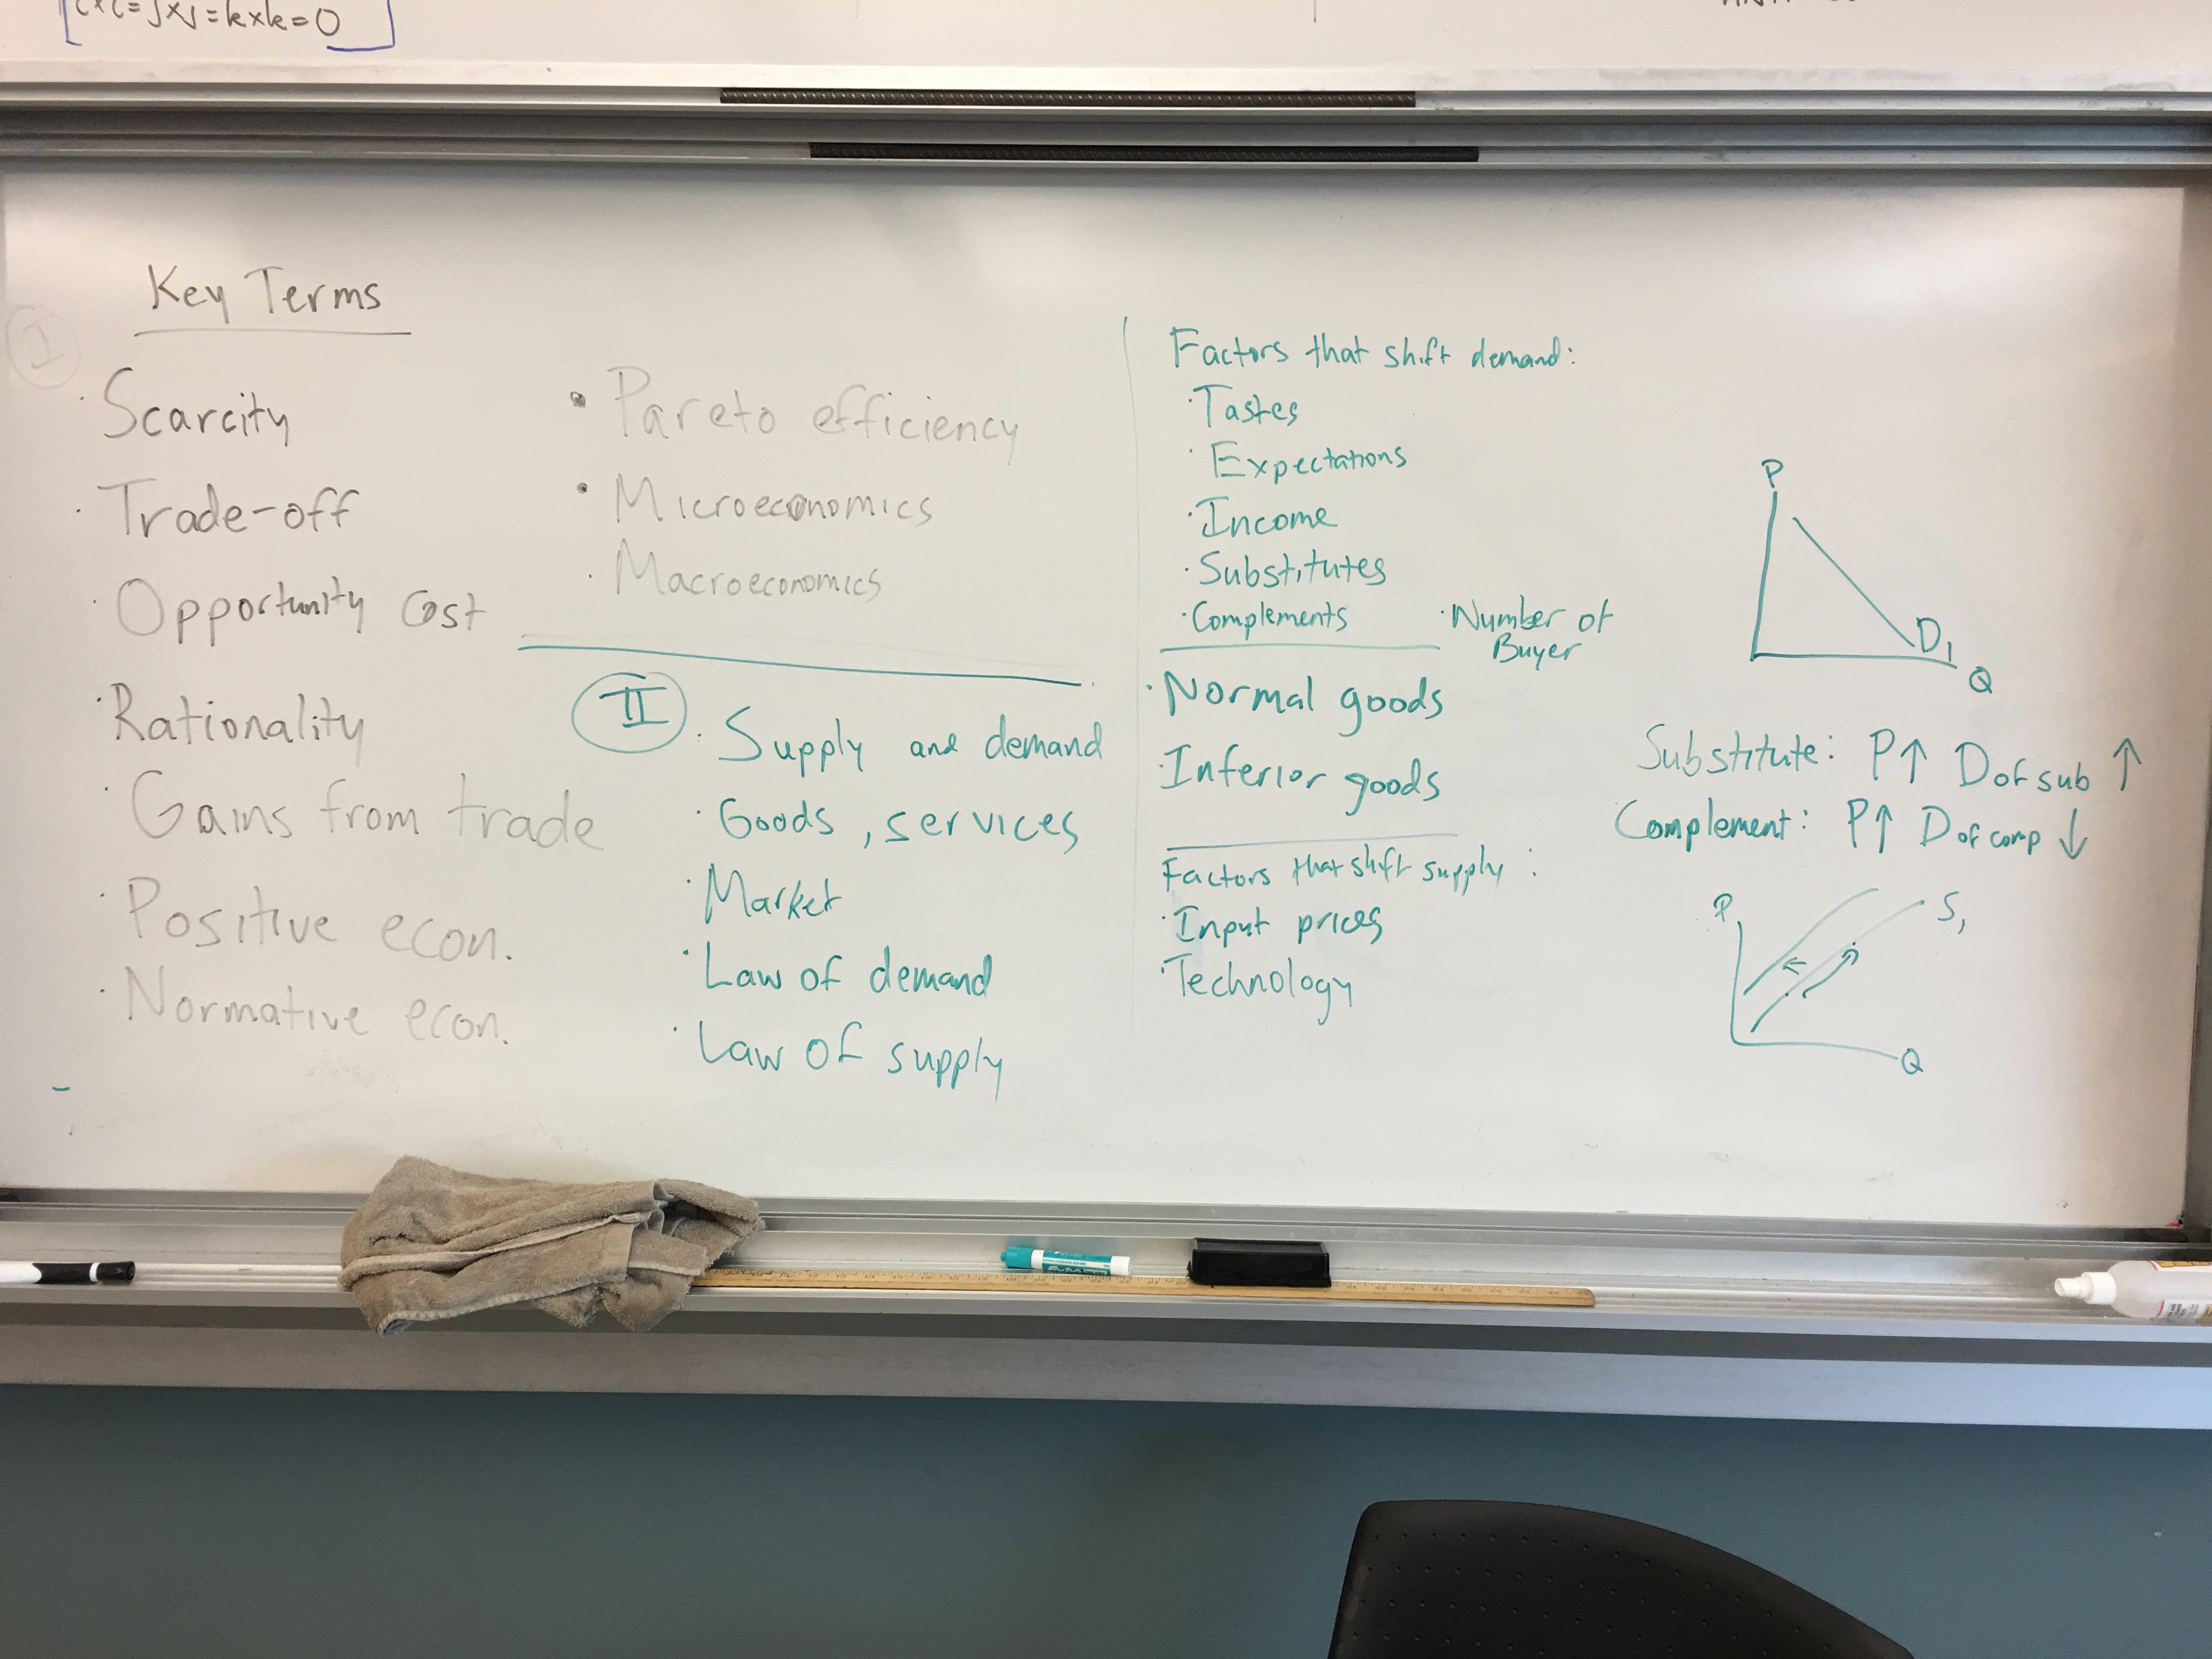 i×i=j×j=k×k=0
Key Terms
I
· Scarcity
· Trade-off
· Opportunity Cost
· Rationality
· Gains from trade
· Positive econ.
· Normative econ.
• Pareto efficiency
• Microeconomics
· Macroeconomics
II
· Supply and demand
· Goods, services
· Market
· Law of demand
· Law of supply
Factors that shift demand:
· Tastes
· Expectations
· Income
· Substitutes
· Complements
· Number of
Buyer
· Normal goods
· Inferior goods
Factors that shift supply:
· Input prices
· Technology
P
D1
Q
Substitute: P↑ D of sub ↑
Complement: P↑ D of comp ↓
P
S1
Q